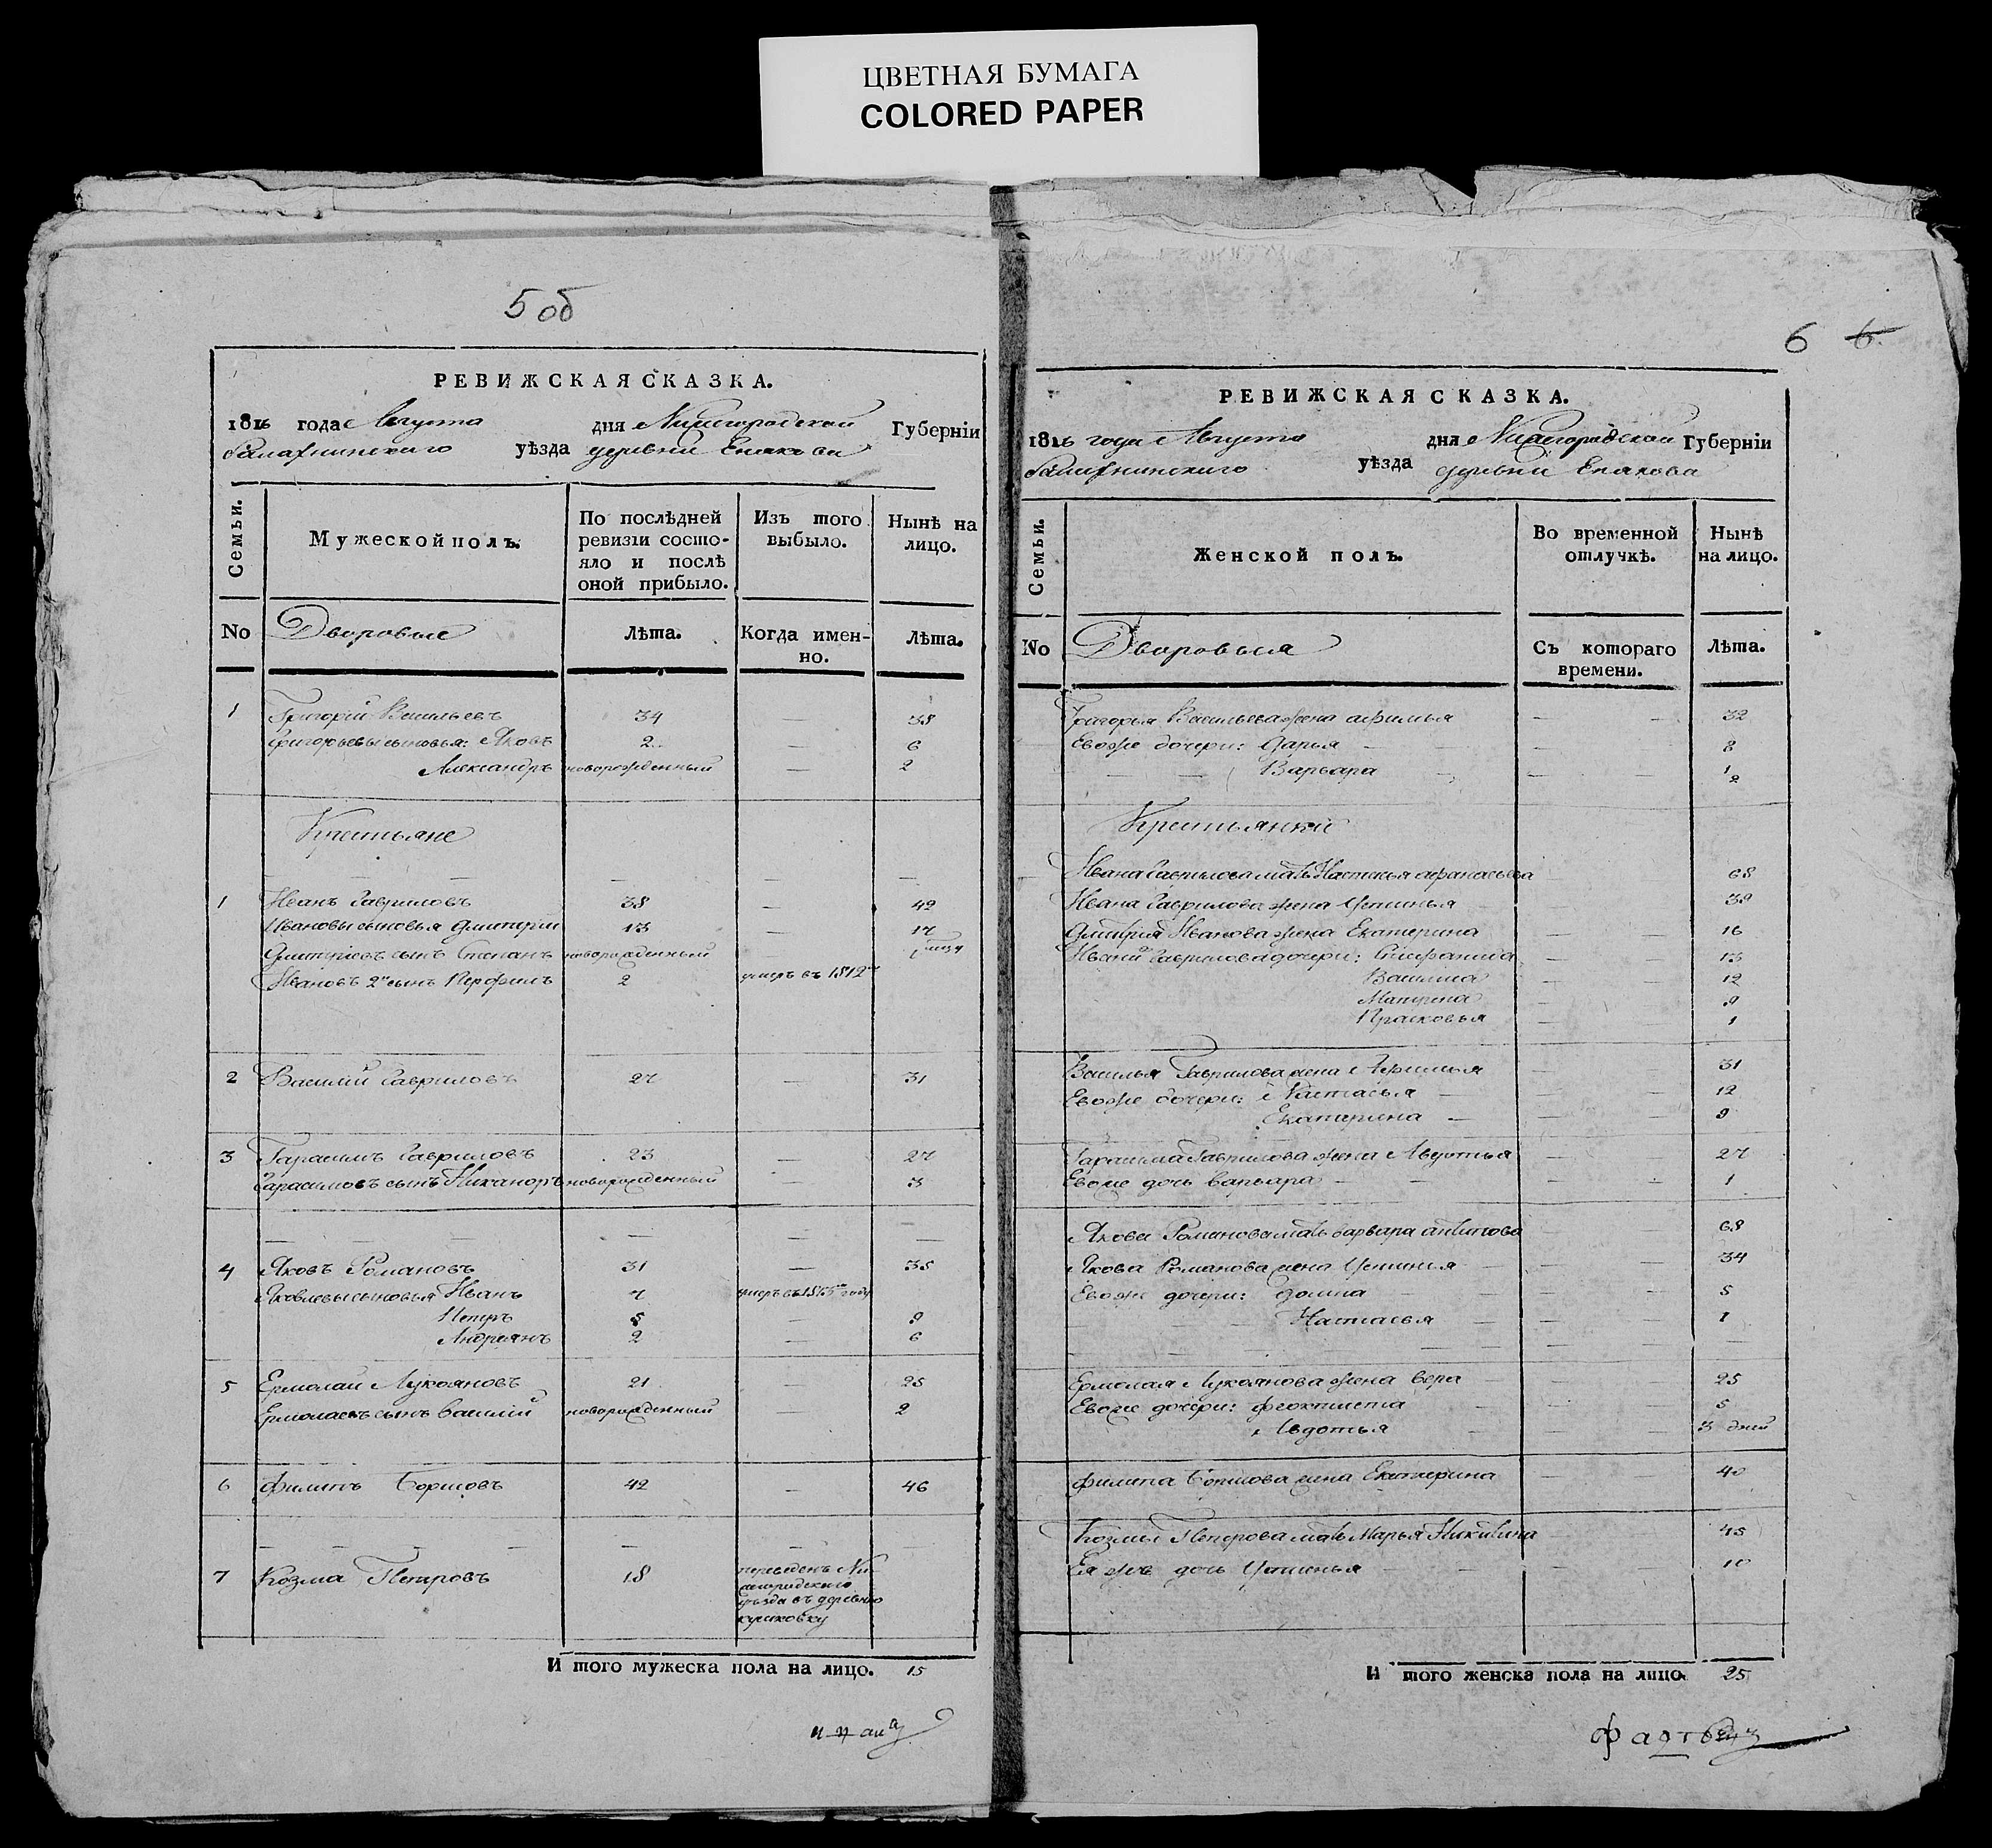 ЦВЕТНАЯ БУМАГА
COLORED PAPER
5 об
РЕВИЖСКАЯ СКАЗКА.
1816 года Августа дня Нижегородской Губерніи
Балахнинскаго уѣзда деревни
Семьи.
Мужеской полъ.
По послѣдней ревизіи состояло и послѣ оной прибыло.
Изъ того выбыло.
Нынѣ на лицо.
No Дворовые Лѣта. Когда именно. Лѣта.
1 Григорій Васильевъ 34 — 38
Григорьевы сыновья: Яковъ 2 — 6
Александръ новорожденный — 2
Крестьяне
1 Иванъ Гавриловъ 38 — 42
Ивановы сыновья Дмитрій 13 — 17
Дмитріевъ сынъ Степанъ новорожденный
Ивановъ 2й сынъ Перфилъ 2 умеръ въ 1812м
2 Василій Гавриловъ 27 — 31
3 Гарасимъ Гавриловъ 23 — 27
Гарасимовъ сынъ Никаноръ новорожденный — 3
4 Яковъ Романовъ 31 — 35
Яковлевы сыновья Иванъ 7 умеръ въ году
Петръ 5 — 9
Андреянъ 2 — 6
5 Ермолай Лукояновъ 21 — 25
Ермолаевъ сынъ Василій новорожденный — 2
6 Филипъ Борисовъ 42 — 46
7 Козма Петровъ 18 переведенъ Ни-
жегородскаго
уѣзда въ деревню
И того мужеска пола на лицо. 15
6 6
РЕВИЖСКАЯ СКАЗКА.
1816 года Августа дня Нижегородской Губерніи
Балахнинскаго уѣзда деревни
Семьи.
Женской полъ.
Во временной отлучкѣ.
Нынѣ на лицо.
No Дворовыя Съ котораго времени. Лѣта.
Григорья Васильева жена Афимья — — 32
Евоже дочери: Дарья — — 8
Варвара — — 1/2
Крестьянки
Ивана Гаврилова мать Настасья Афанасьева 68
Ивана Гаврилова жена Устинья 39
Дмитрия Иванова жена Екатерина 16
Ивана Гаврилова дочери: 13
Василиса 12
Матрена 9
Прасковья 1
Василья Гаврилова жена Афимья 31
Евоже дочери: Настасья 12
Екатерина 9
Гарасима Гаврилова жена Авдотья 27
Евоже дочь Варвара 1
Якова Романова мать Варвара 68
Якова Романова жена Устинья 34
Евоже дочери: Домна 5
Настасья 1
Ермолая Лукоянова жена Вера 25
Евоже дочери: Феоктиста 5
Авдотья 3 дней
Филипа Борисова жена Екатерина 40
Козмы Петрова мать Марья Никитина 45
Ея же дочь Устинья 10
И того женска пола на лицо. 25